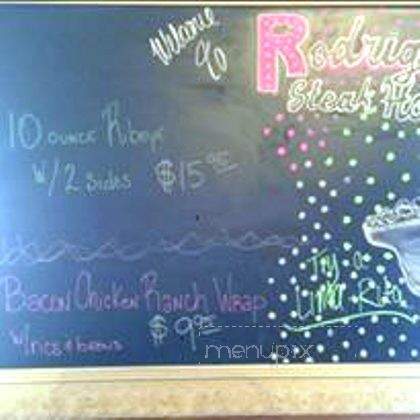 Rodrig
Steak Ho
10 ounce Ribeye
w/2 sides $15.95
Try a
Bacon Chicken Ranch Wrap
w/rice & beans $9.95
menupix